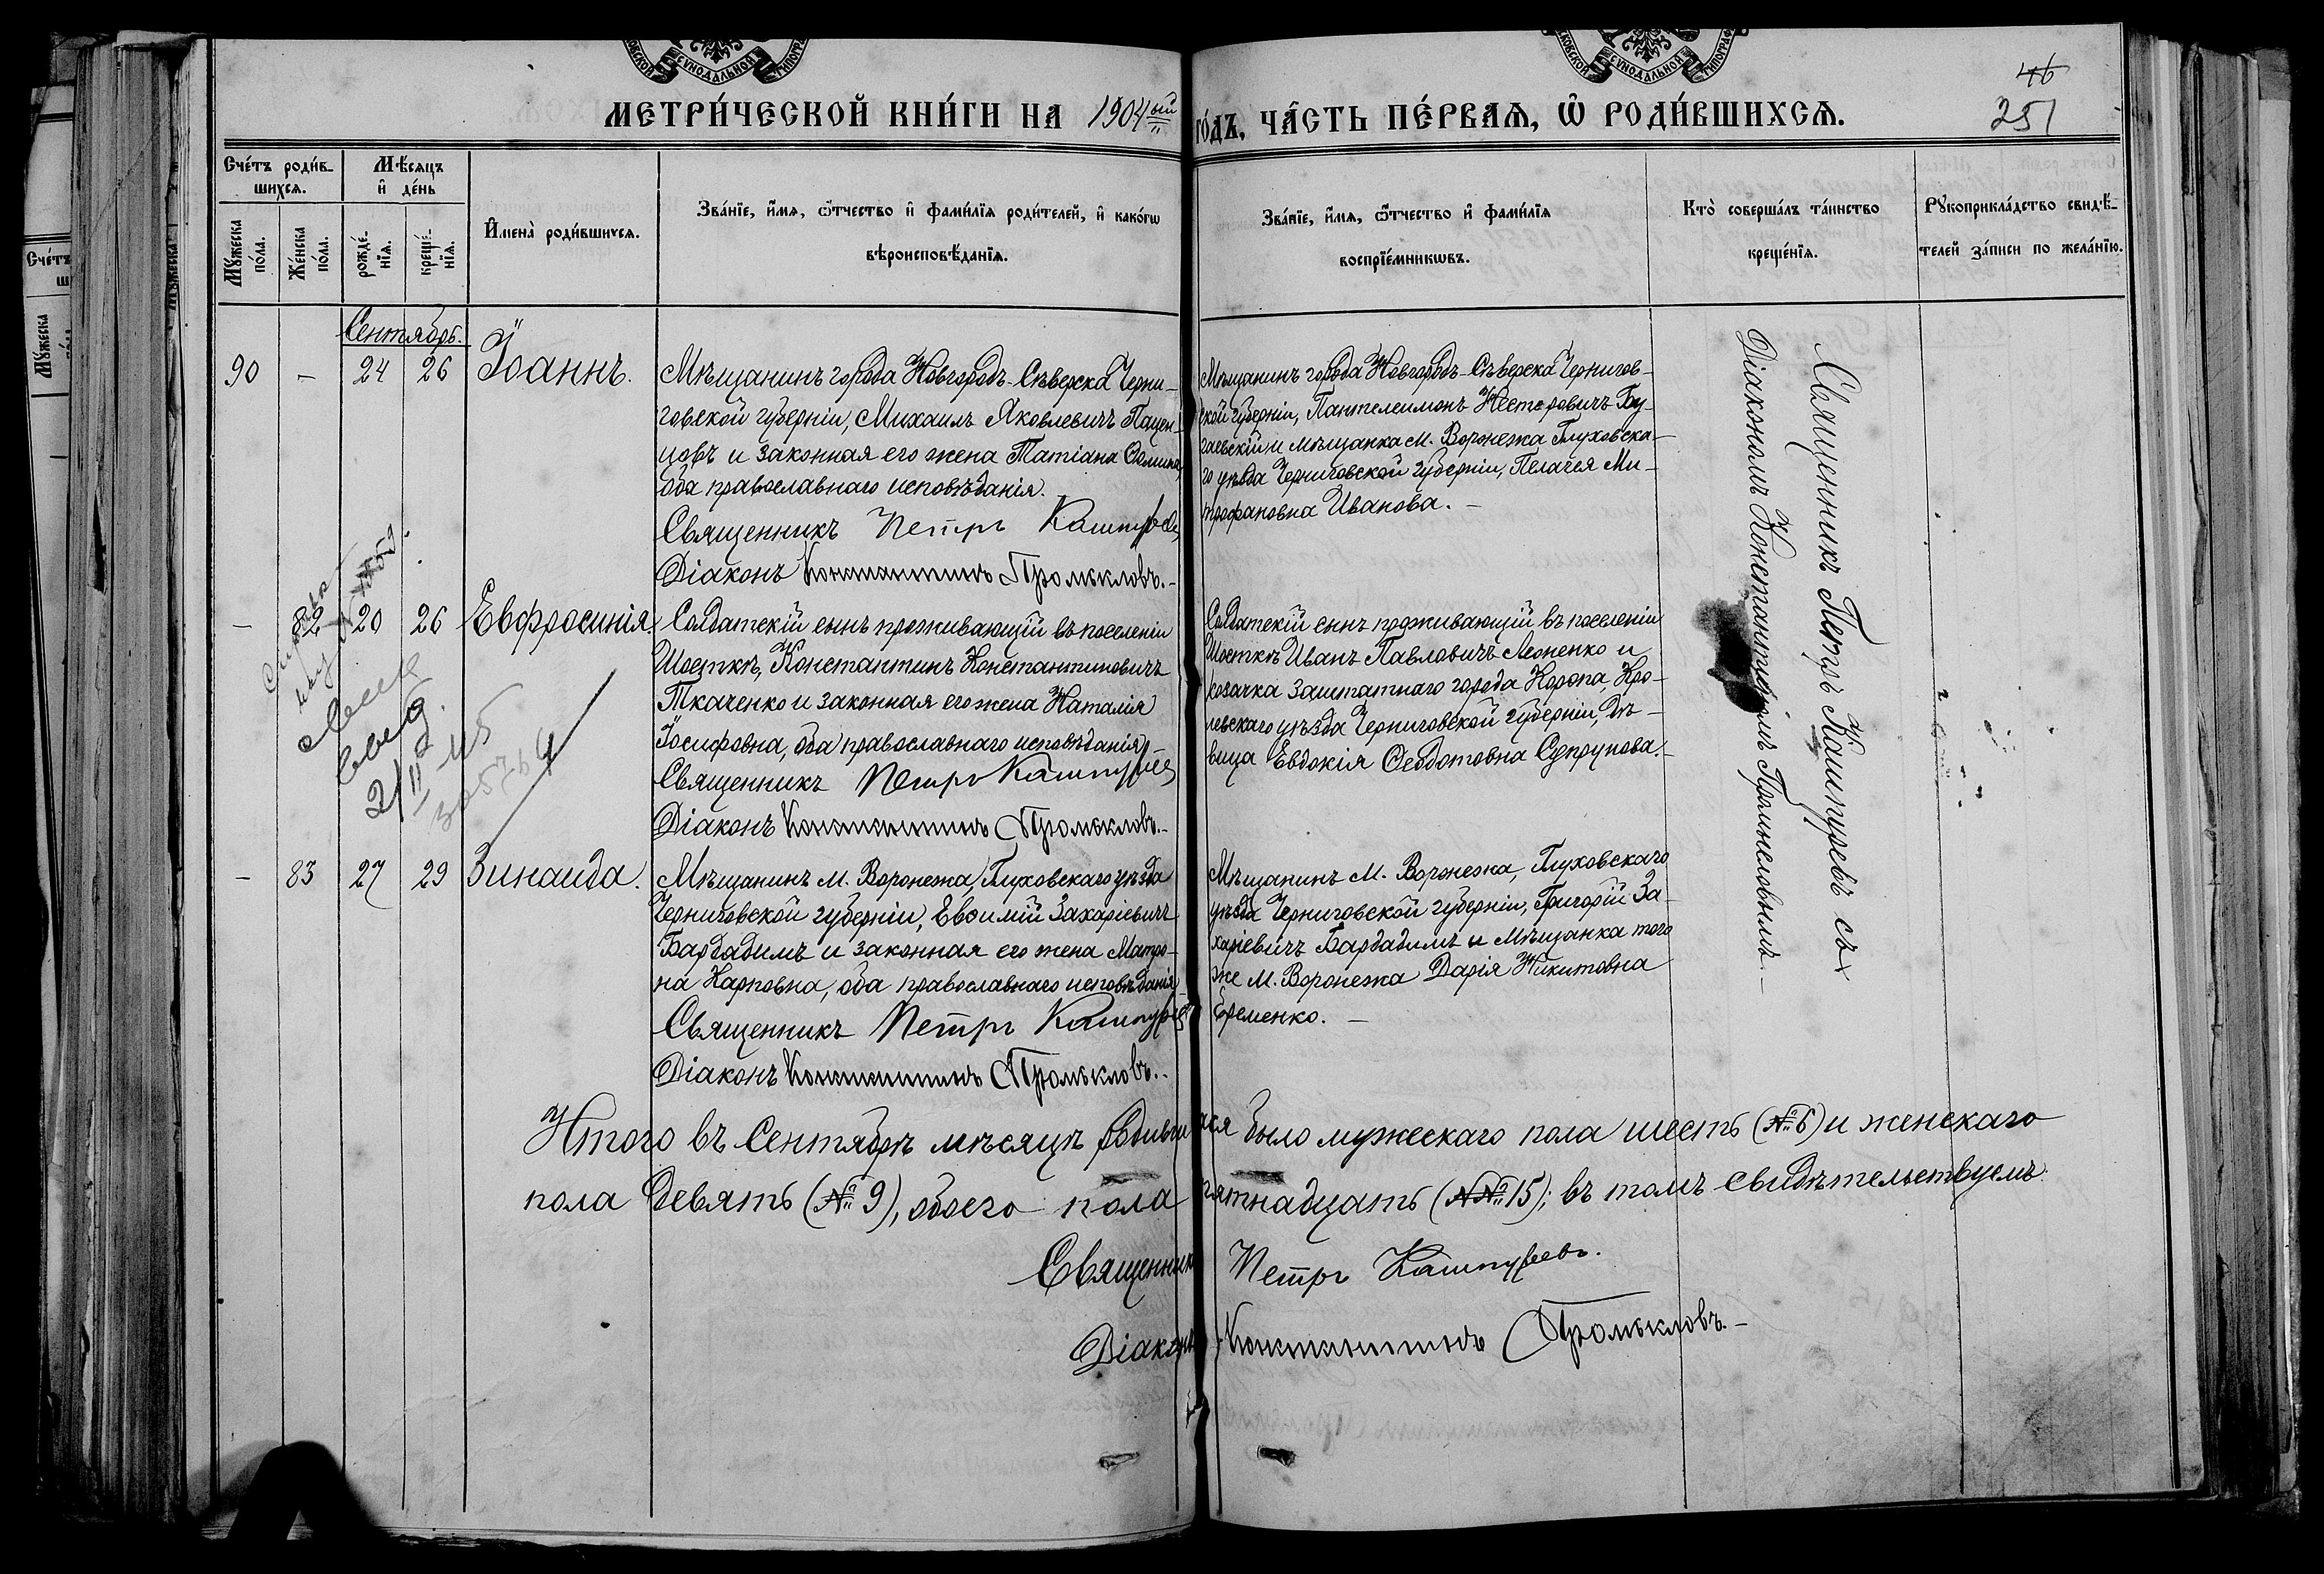 МОСКОВСКОЙ СѴНОДАЛЬНОЙ ТИПОГРАФ
МОСКОВСКОЙ СѴНОДАЛЬНОЙ ТИПОГРАФ
МЕТРИ́ЧЕСКОЙ КНИ́ГИ НА 1904ый
ГО́ДЪ, ЧА́СТЬ ПЕ́РВАѦ, Ѡ҆ РОДИ́ВШИХСѦ.
46
251
Сче́тъ роди́в-
шихсѧ.
Мꙋ́жеска
по́ла.
Же́нска
по́ла.
Мѣ́сѧцъ
и҆ де́нь
рожде́-
нїѧ.
креще́-
нїѧ.
И҆мена̀ роди́вшихсѧ.
Зва́нїе, и҆́мѧ, ѻ҆́тчество и҆ фами́лїѧ роди́телей, и҆ како́гѡ
вѣроисповѣ́данїѧ.
Зва́нїе, и҆́мѧ, ѻ҆́тчество и҆ фами́лїѧ
воспрїе́мникѡвъ.
Кто̀ соверша́лъ та́инство
креще́нїѧ.
Рꙋкоприкла́дство свидѣ́-
телей за́писи по жела́нїю.
Сентябрь.
90 – 24 26 Іоаннъ.
Мѣщанинъ города Новгородъ-Сѣверска Черни-
говской губерніи, Михаилъ Яковлевичъ Пацен-
цовъ и законная его жена Татіана Ѳомина,
оба православнаго исповѣданія.
Священникъ Петръ Кашпурев
Діаконъ Константинъ Промькловъ.-
Мѣщанинъ города Новгородъ-Сѣверска Чернигов-
ской губерніи, Пантелеимонъ Несторовичъ Бу-
гаевскій и мѣщанка м. Воронежа Глуховска-
го уѣзда Черниговской губерніи, Пелагея Ми-
трофановна Иванова. –
Священникъ Петръ Кашпуревъ съ
Діакономъ Константиномъ
– 82 20 26 Евфросинія.
Солдатскій сынъ проживающій въ поселеніи
Шосткѣ, Константинъ Константиновичъ
Ткаченко и законная его жена Наталія
Іосифовна, оба православнаго исповѣданія –
Священникъ Петръ Кашпурев
Діаконъ Константинъ Промькловъ.-
Солдатскій сынъ проживающій въ поселеніи
Шосткѣ Иванъ Павловичъ Леоненко и
козачка заштатнаго города Коропа, Кро-
левскаго уѣзда Черниговской губерніи, дѣ-
вица Евдокія Ѳеодотовна Супрунова.-
свид.
2/II
– 83 27 29 Зинаида.
Мѣщанинъ м. Воронежа, Глуховскаго уѣзда
Черниговской губерніи, Евѳимій Захаріевичъ
Бардадимъ и законная его жена Матро-
на Карповна, оба православнаго исповѣданія
Священникъ Петръ Кашпурев
Діаконъ Константинъ Промькловъ..
Мѣщанинъ м. Воронежа, Глуховскаго
уѣзда Черниговской губерніи, Григорій За-
харіевичъ Бардадимъ и мѣщанка того
же м. Воронежа Дарія Никитовна
Еременко. –
Итого въ Сентябрѣ мѣсяцѣ родившихся было мужескаго пола шесть (№ 6) и женскаго
пола девять (№ 9), обоего пола пятнадцать (№№ 15); въ томъ свидѣтельствуемъ:
Священникъ Петръ Кашпуревъ.
Діаконъ Константинъ Промькловъ.–